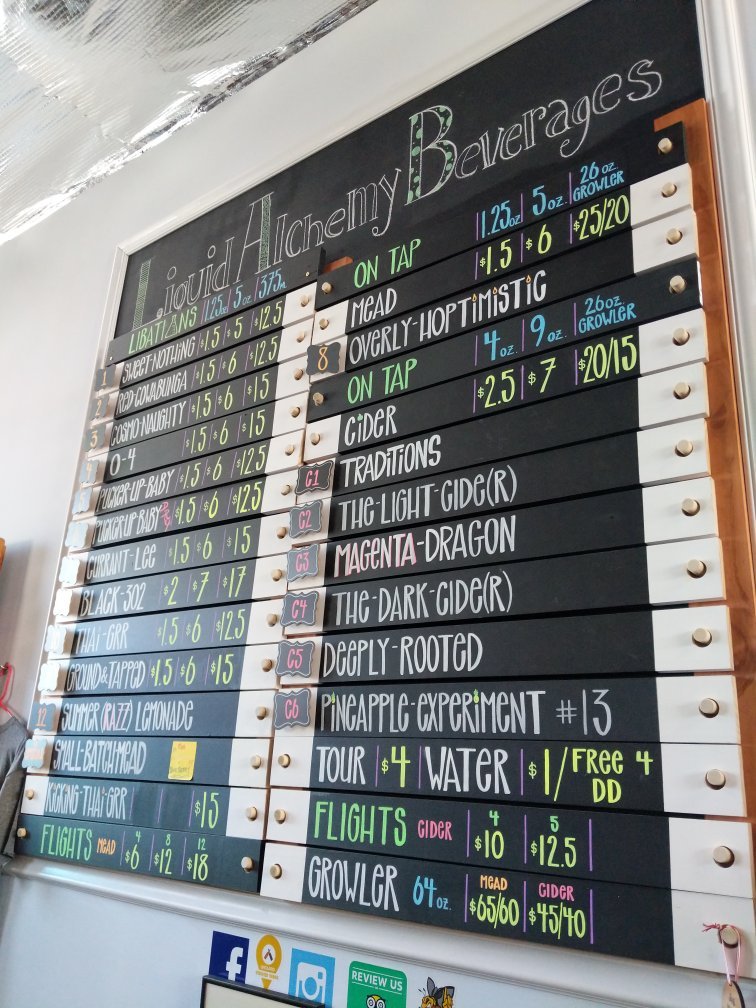 Liquid Alchemy Beverages
LIBATIONS 1.25oz 5 oz. 375ml
1 SWEET-NOTHING $1.5 $5 $12.5
2 RED-COWABUNGA $1.5 $6 $12.5
3 COSMO-NAUGHTY $1.5 $6 $15
O-4 $1.5 $6 $15
PUCKER-UP-BABY $1.5 $6 $12.5
PUCKER-UP-BABY $1.5 $6 $12.5
CURRANT-LEE $1.5 $6 $15
BLACK-302 $2 $7 $17
THAI-GRR $1.5 $6 $12.5
GROUND&TAPPED $1.5 $6 $15
12 SUMMER (RAZZ) LEMONADE
SMALL-BATCH-MEAD
KICKING-THAI-GRR $15
FLIGHTS MEAD 4 $6 8 $12 12 $18
ON TAP 1.25oz 5 oz. 26 oz. GROWLER
MEAD $1.5 $6 $25/20
8 OVERLY-HOPTIMISTIC
ON TAP 4 oz. 9 oz. 26oz. GROWLER
CIDER $2.5 $7 $20/15
C1 TRADITIONS
C2 THE-LIGHT-CIDE(R)
C3 MAGENTA-DRAGON
C4 THE-DARK-CIDE(R)
C5 DEEPLY-ROOTED
C6 PINEAPPLE-EXPERIMENT #13
TOUR $4 WATER $1/FREE 4 DD
FLIGHTS CIDER 4 $10 5 $12.5
GROWLER 64 oz. MEAD $65/60 CIDER $45/40
REVIEW US